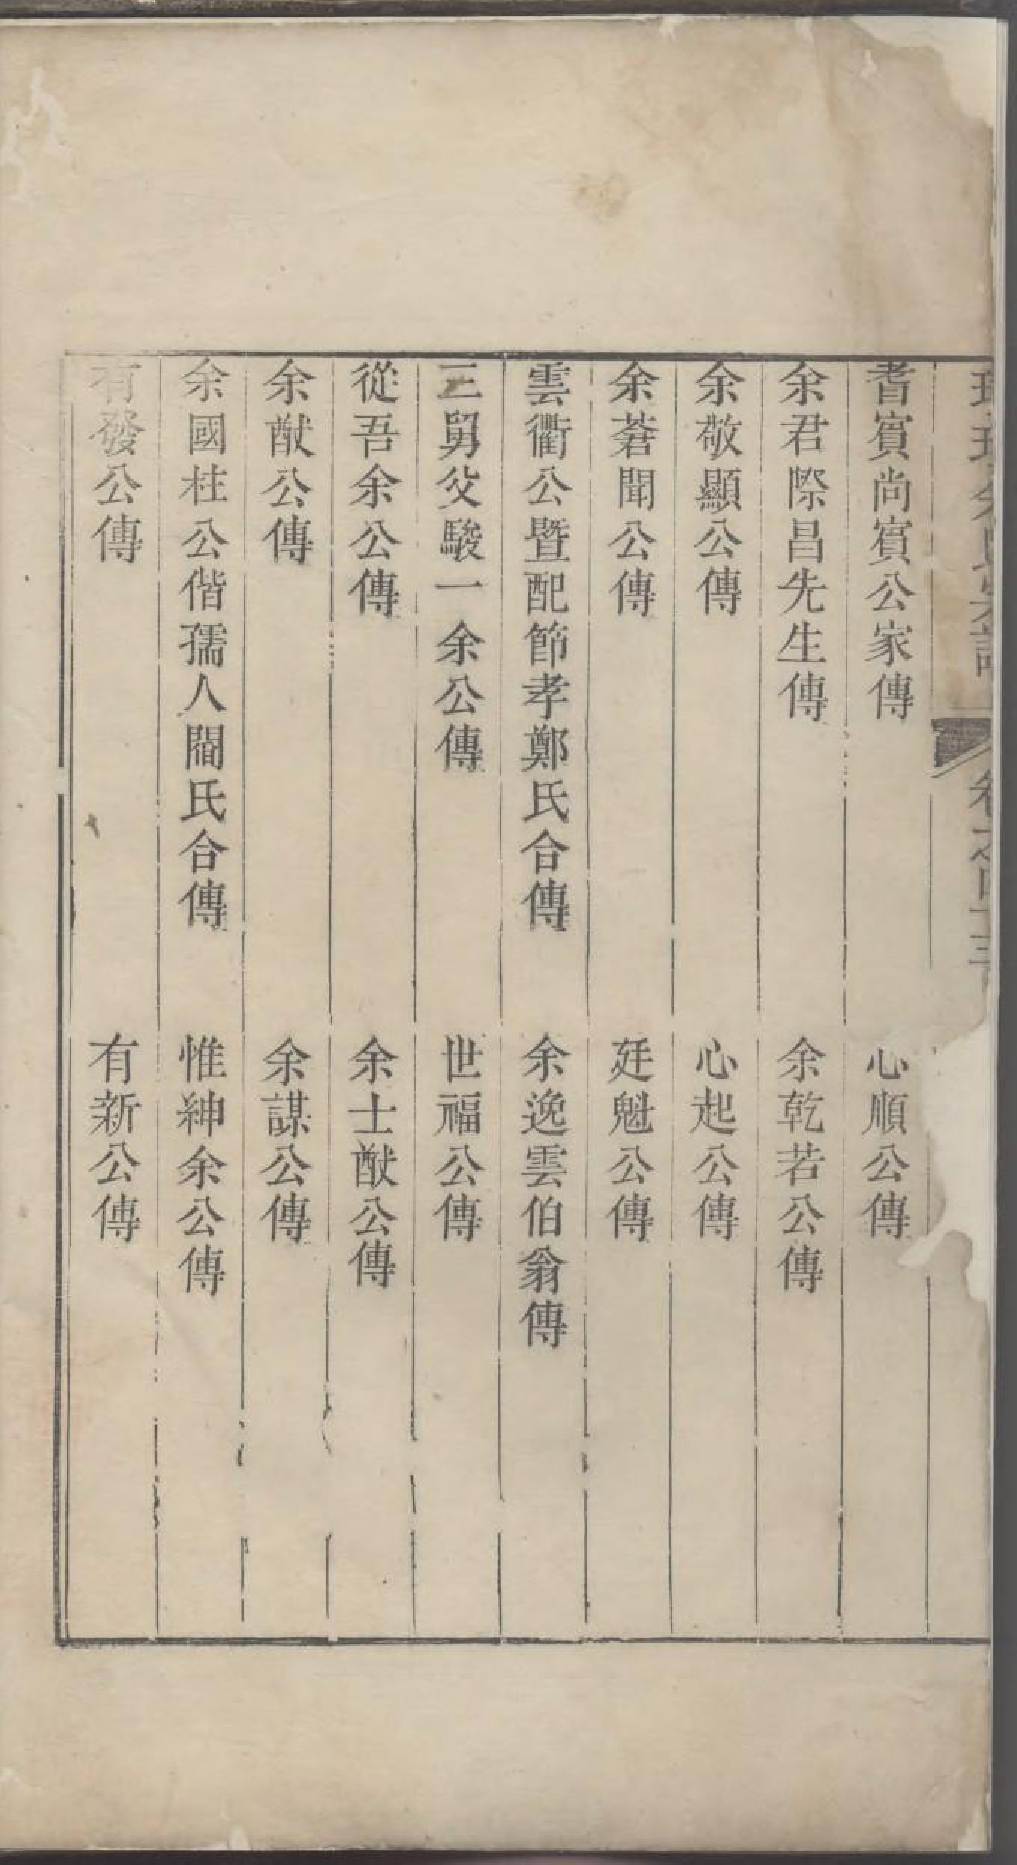 耆賓尚賓公家傳　心順公傳
余君際昌先生傳　余乾若公傳
余敬顯公傳　心起公傳
余蒼聞公傳　廷魁公傳
雲衢公暨配節孝鄭氏合傳　余逸雲伯翁傳
三舅父駿一余公傳　世福公傳
從吾余公傳　余士猷公傳
余猷公傳　余謀公傳
余國柱公偕孺人閻氏合傳　惟紳余公傳
有發公傳　有新公傳